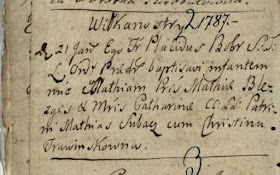 Wilkanostry 1787.
21 Jan: Ego Fr Placidus Bobr S: T:
L: Ord: Prædic: baptisavi infantem
nne Mathiam Pris Mathiæ Ble
zgis & Mris Catharinæ CC: LL: Patri
ni Mathias Subacz cum Christina
Drawinskowna